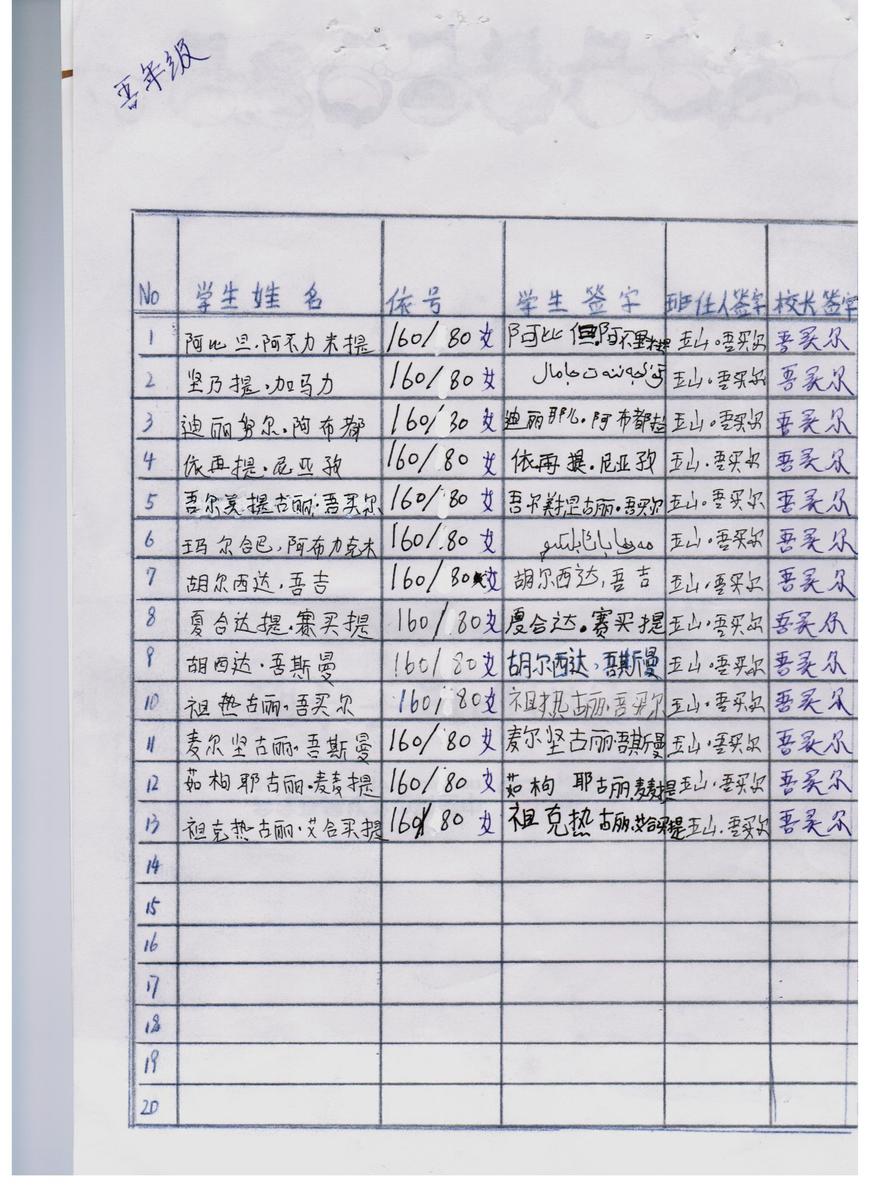 年级
No 学生姓名 依号 学生签字 班任人签字 校长签字
1 阿比旦.阿不力米提 160/80女 阿比但.阿不里米提 玉山.吾买尔 吾买尔
2 坚乃提.加马力 160/80女 玉山.吾买尔 吾买尔
3 迪丽努尔.阿布都 160/30女 迪丽.阿布都 玉山.吾买尔 吾买尔
4 依再提.尼亚孜 160/80女 依再提.尼亚孜 玉山.吾买尔 吾买尔
5 吾尔美提古丽.吾买尔 160/80女 吾尔美提古丽.吾买尔 玉山.吾买尔 吾买尔
6 玛尔合巴.阿布力克木 160/80女 玉山.吾买尔 吾买尔
7 胡尔西达.吾吉 160/80女 胡尔西达.吾吉 玉山.吾买尔 吾买尔
8 夏合达提.赛买提 160/80女 夏合达.赛买提 玉山.吾买尔 吾买尔
9 胡西达.吾斯曼 160/80女 胡尔西达.吾斯曼 玉山.吾买尔 吾买尔
10 祖热古丽.吾买尔 160/80女 祖热古丽.吾买尔 玉山.吾买尔 吾买尔
11 麦尔坚古丽.吾斯曼 160/80女 麦尔坚古丽.吾斯曼 玉山.吾买尔 吾买尔
12 茹柯耶古丽.麦麦提 160/80女 茹柯耶古丽.麦麦提 玉山.吾买尔 吾买尔
13 祖克热古丽.艾合买提 160/80女 祖克热古丽.艾合买提 玉山.吾买尔 吾买尔
14
15
16
17
18
19
20